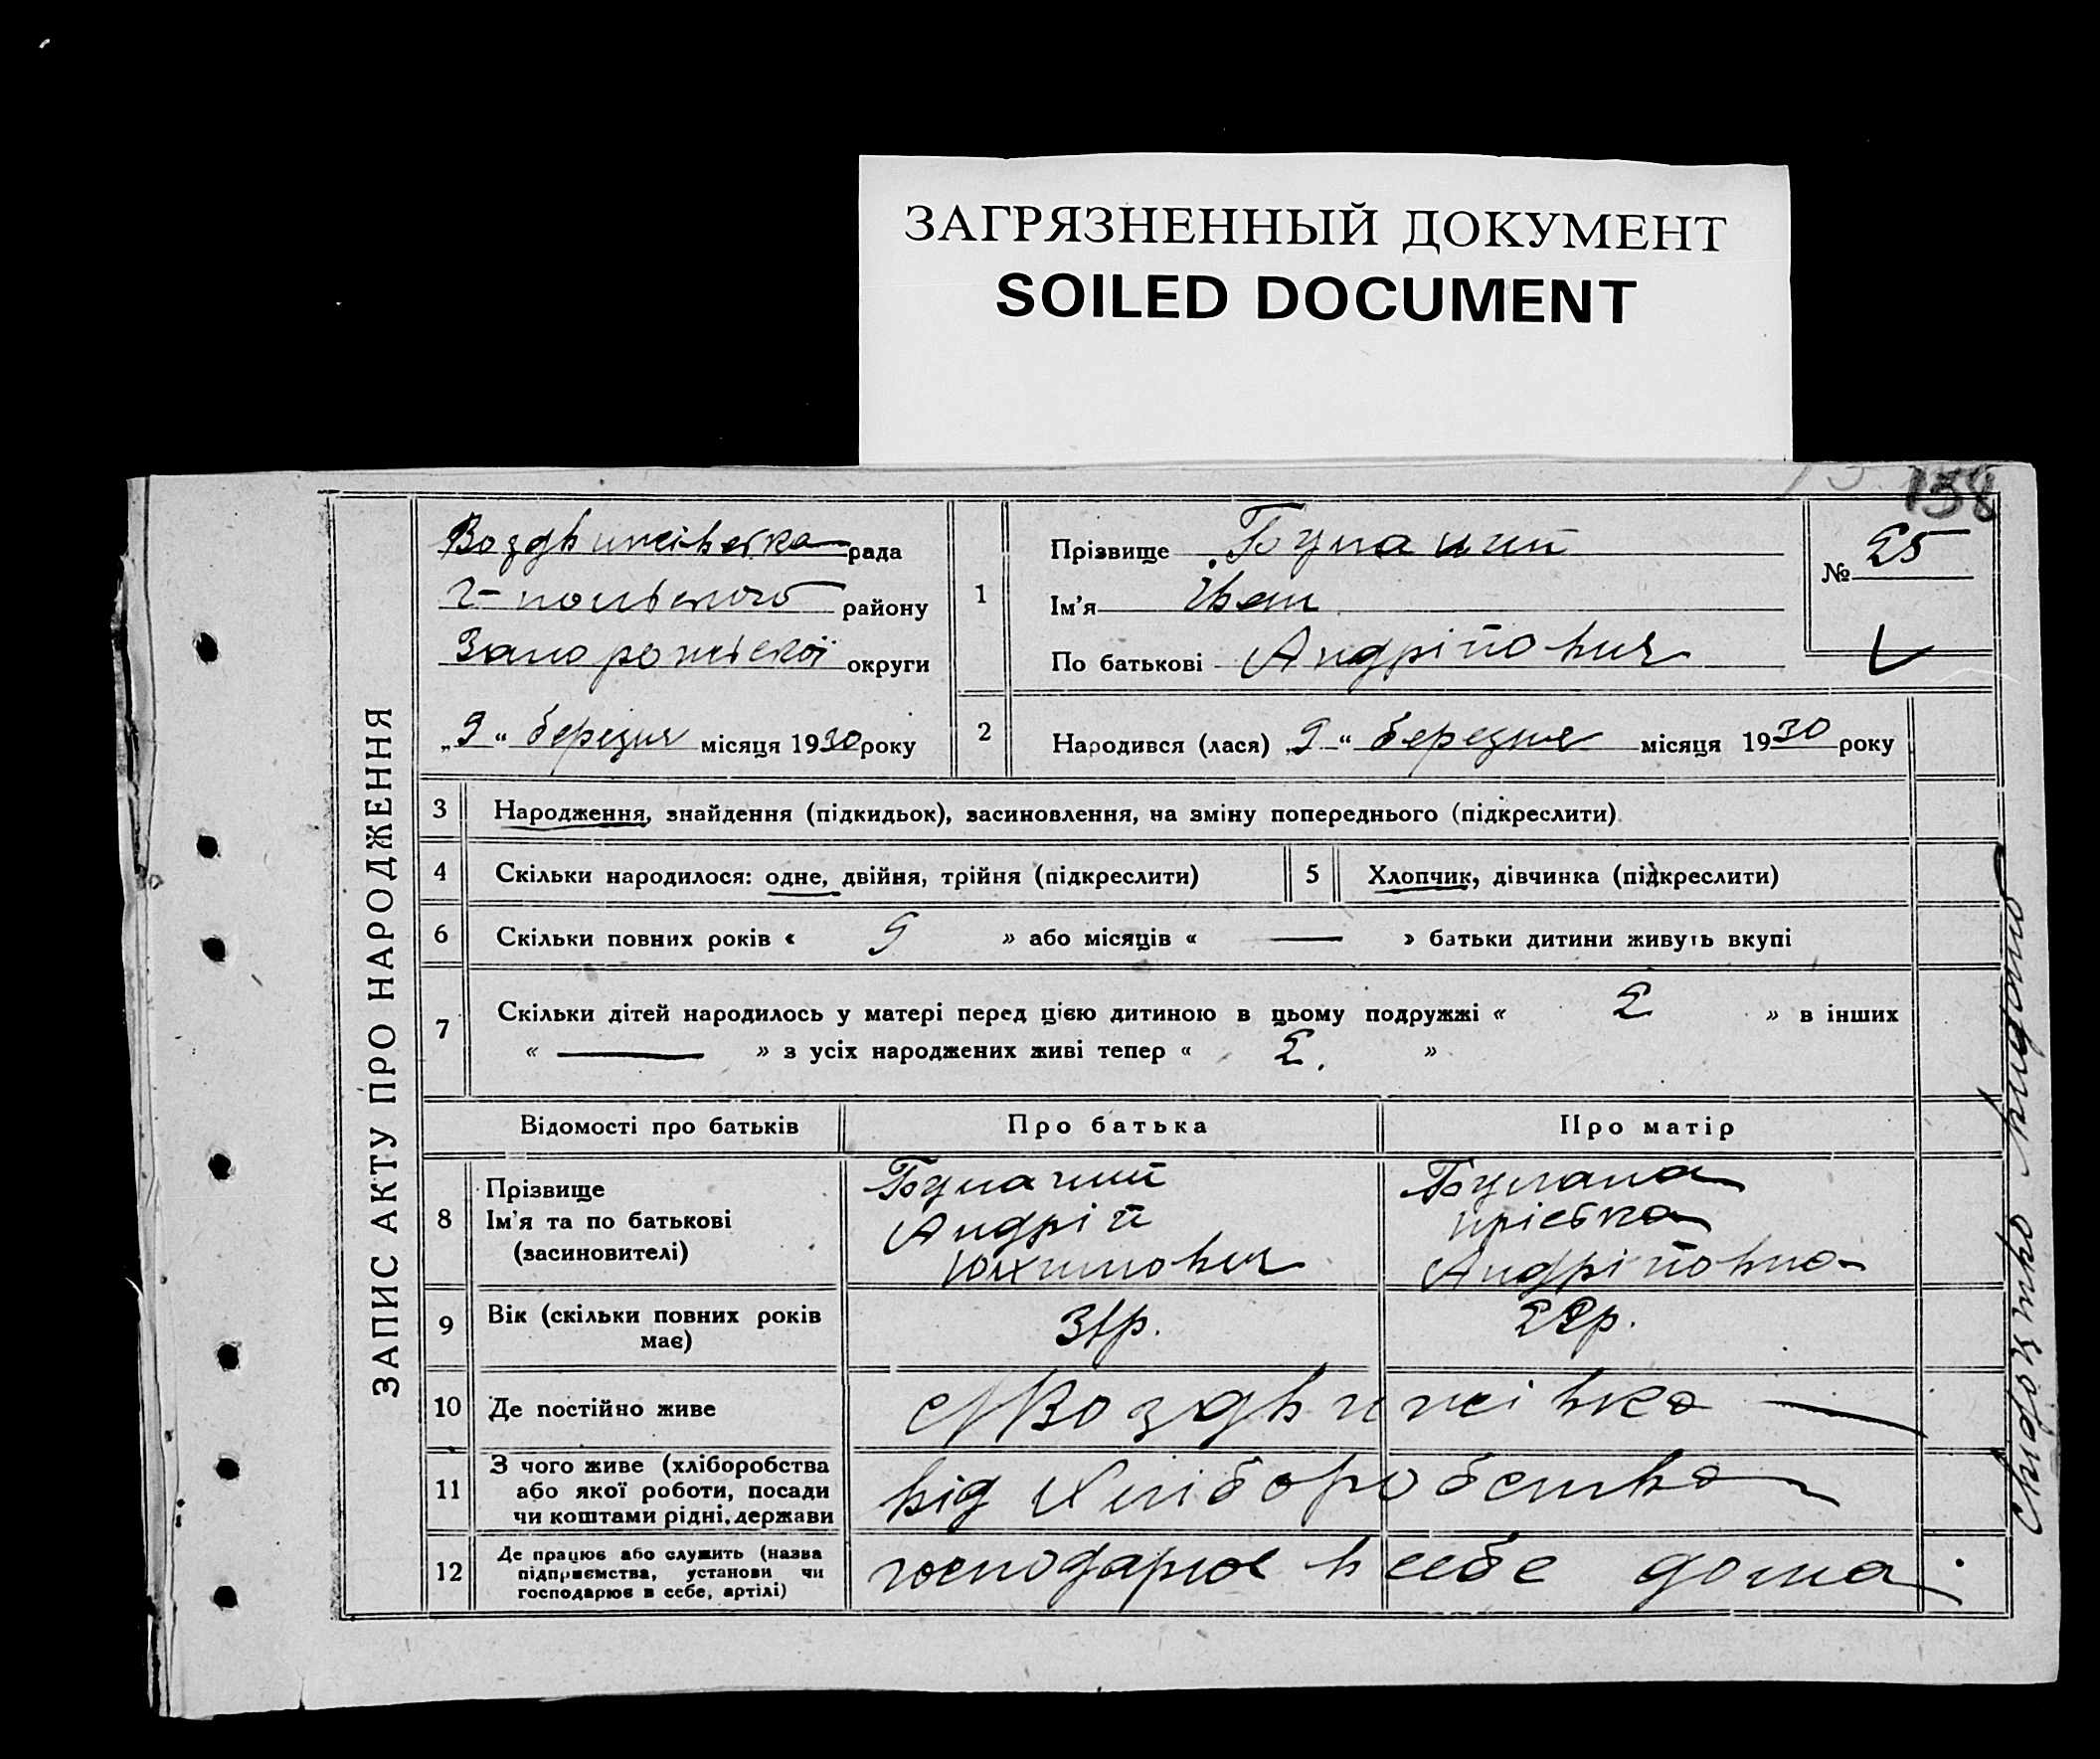 ЗАГРЯЗНЕННЫЙ ДОКУМЕНТ
SOILED DOCUMENT
138
ЗАПИС АКТУ ПРО НАРОДЖЕННЯ
Воздвижівська рада
Г-польського району
Запоріжської округи
„9“ березня місяця 1930 року
1
Прізвище
Ім'я Іван
По батькові Андрійович
№ 25
2
Народився (лася) „9“ березня місяця 1930 року
3 Народження, знайдення (підкидьок), засиновлення, на зміну попереднього (підкреслити)
4 Скільки народилося: одне, двійня, трійня (підкреслити)
5 Хлопчик, дівчинка (підкреслити)
6 Скільки повних років « 9 » або місяців « — » батьки дитини живуть вкупі
7 Скільки дітей народилось у матері перед цією дитиною в цьому подружжі « 2 » в інших
« — » з усіх народжених живі тепер « 2. »
Відомості про батьків Про батька Про матір
8 Прізвище
Ім'я та по батькові
(засиновителі)
Андрій
Юхимович
Андрійовна
9 Вік (скільки повних років
має)
31р. 29р.
10 Де постійно живе
с Воздвижівка
11 З чого живе (хліборобства
або якої роботи, посади
чи коштами рідні, держави
від хліборобства
12 Де працює або служить (назва
підприємства, установи чи
господарює в себе, артілі)
господарює в себе дома
Свідоцтво видано